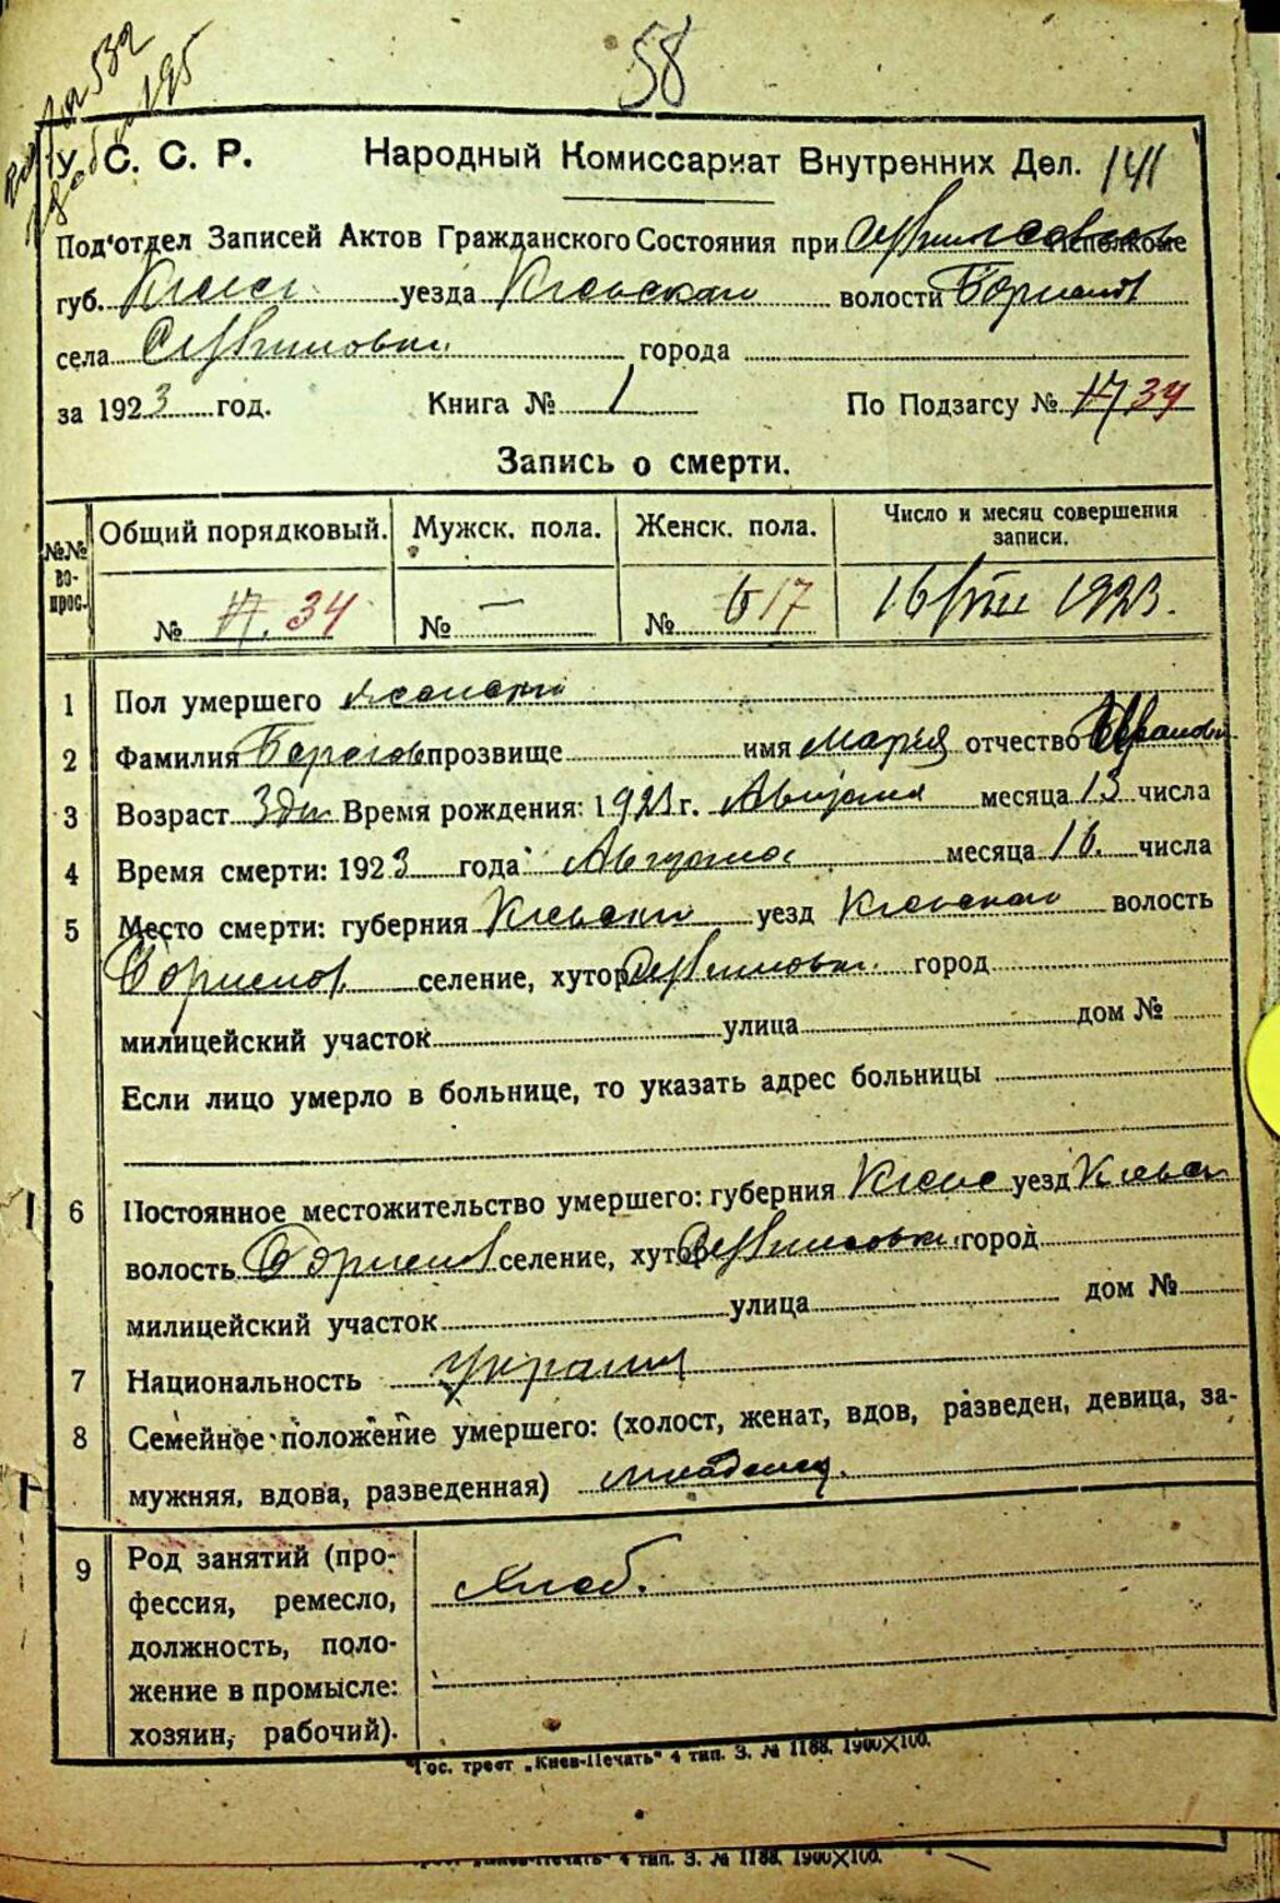 58
У. С. С. Р. Народный Комиссариат Внутренних Дел. 141
Под'отдел Записей Актов Гражданского Состояния при Исполкоме
губ. Киевс. уезда Киевскаи волости
села города
за 1923 год. Книга № 1 По Подзагсу № 17 34
Запись о смерти.
№№ во- прос. Общий порядковый. Мужск. пола. Женск. пола. Число и месяц совершения записи.
№ 17. 34 № — № 6 17 16/VIII 1923.
1 Пол умершего женски
2 Фамилия прозвище имя Мария отчество
3 Возраст 3 дн Время рождения: 1923 г. Августа месяца 13 числа
4 Время смерти: 1923 года Августа месяца 16. числа
5 Место смерти: губерния Киевски уезд Киевскаи волость
селение, хутор город
милицейский участок улица дом №
Если лицо умерло в больнице, то указать адрес больницы
6 Постоянное местожительство умершего: губерния Киевс уезд Киевск
волость селение, хутор город
милицейский участок улица дом №
7 Национальность украин
8 Семейное положение умершего: (холост, женат, вдов, разведен, девица, за-
мужняя, вдова, разведенная) младенец.
9 Род занятий (про-
фессия, ремесло, хлеб.
должность, поло-
жение в промысле:
хозяин, рабочий).
Гос. трест „Киев-Печать" 4 тип. З. № 1188. 1900×100.
трест „Киев-Печать" 4 тип. З. № 1188. 1900×100.